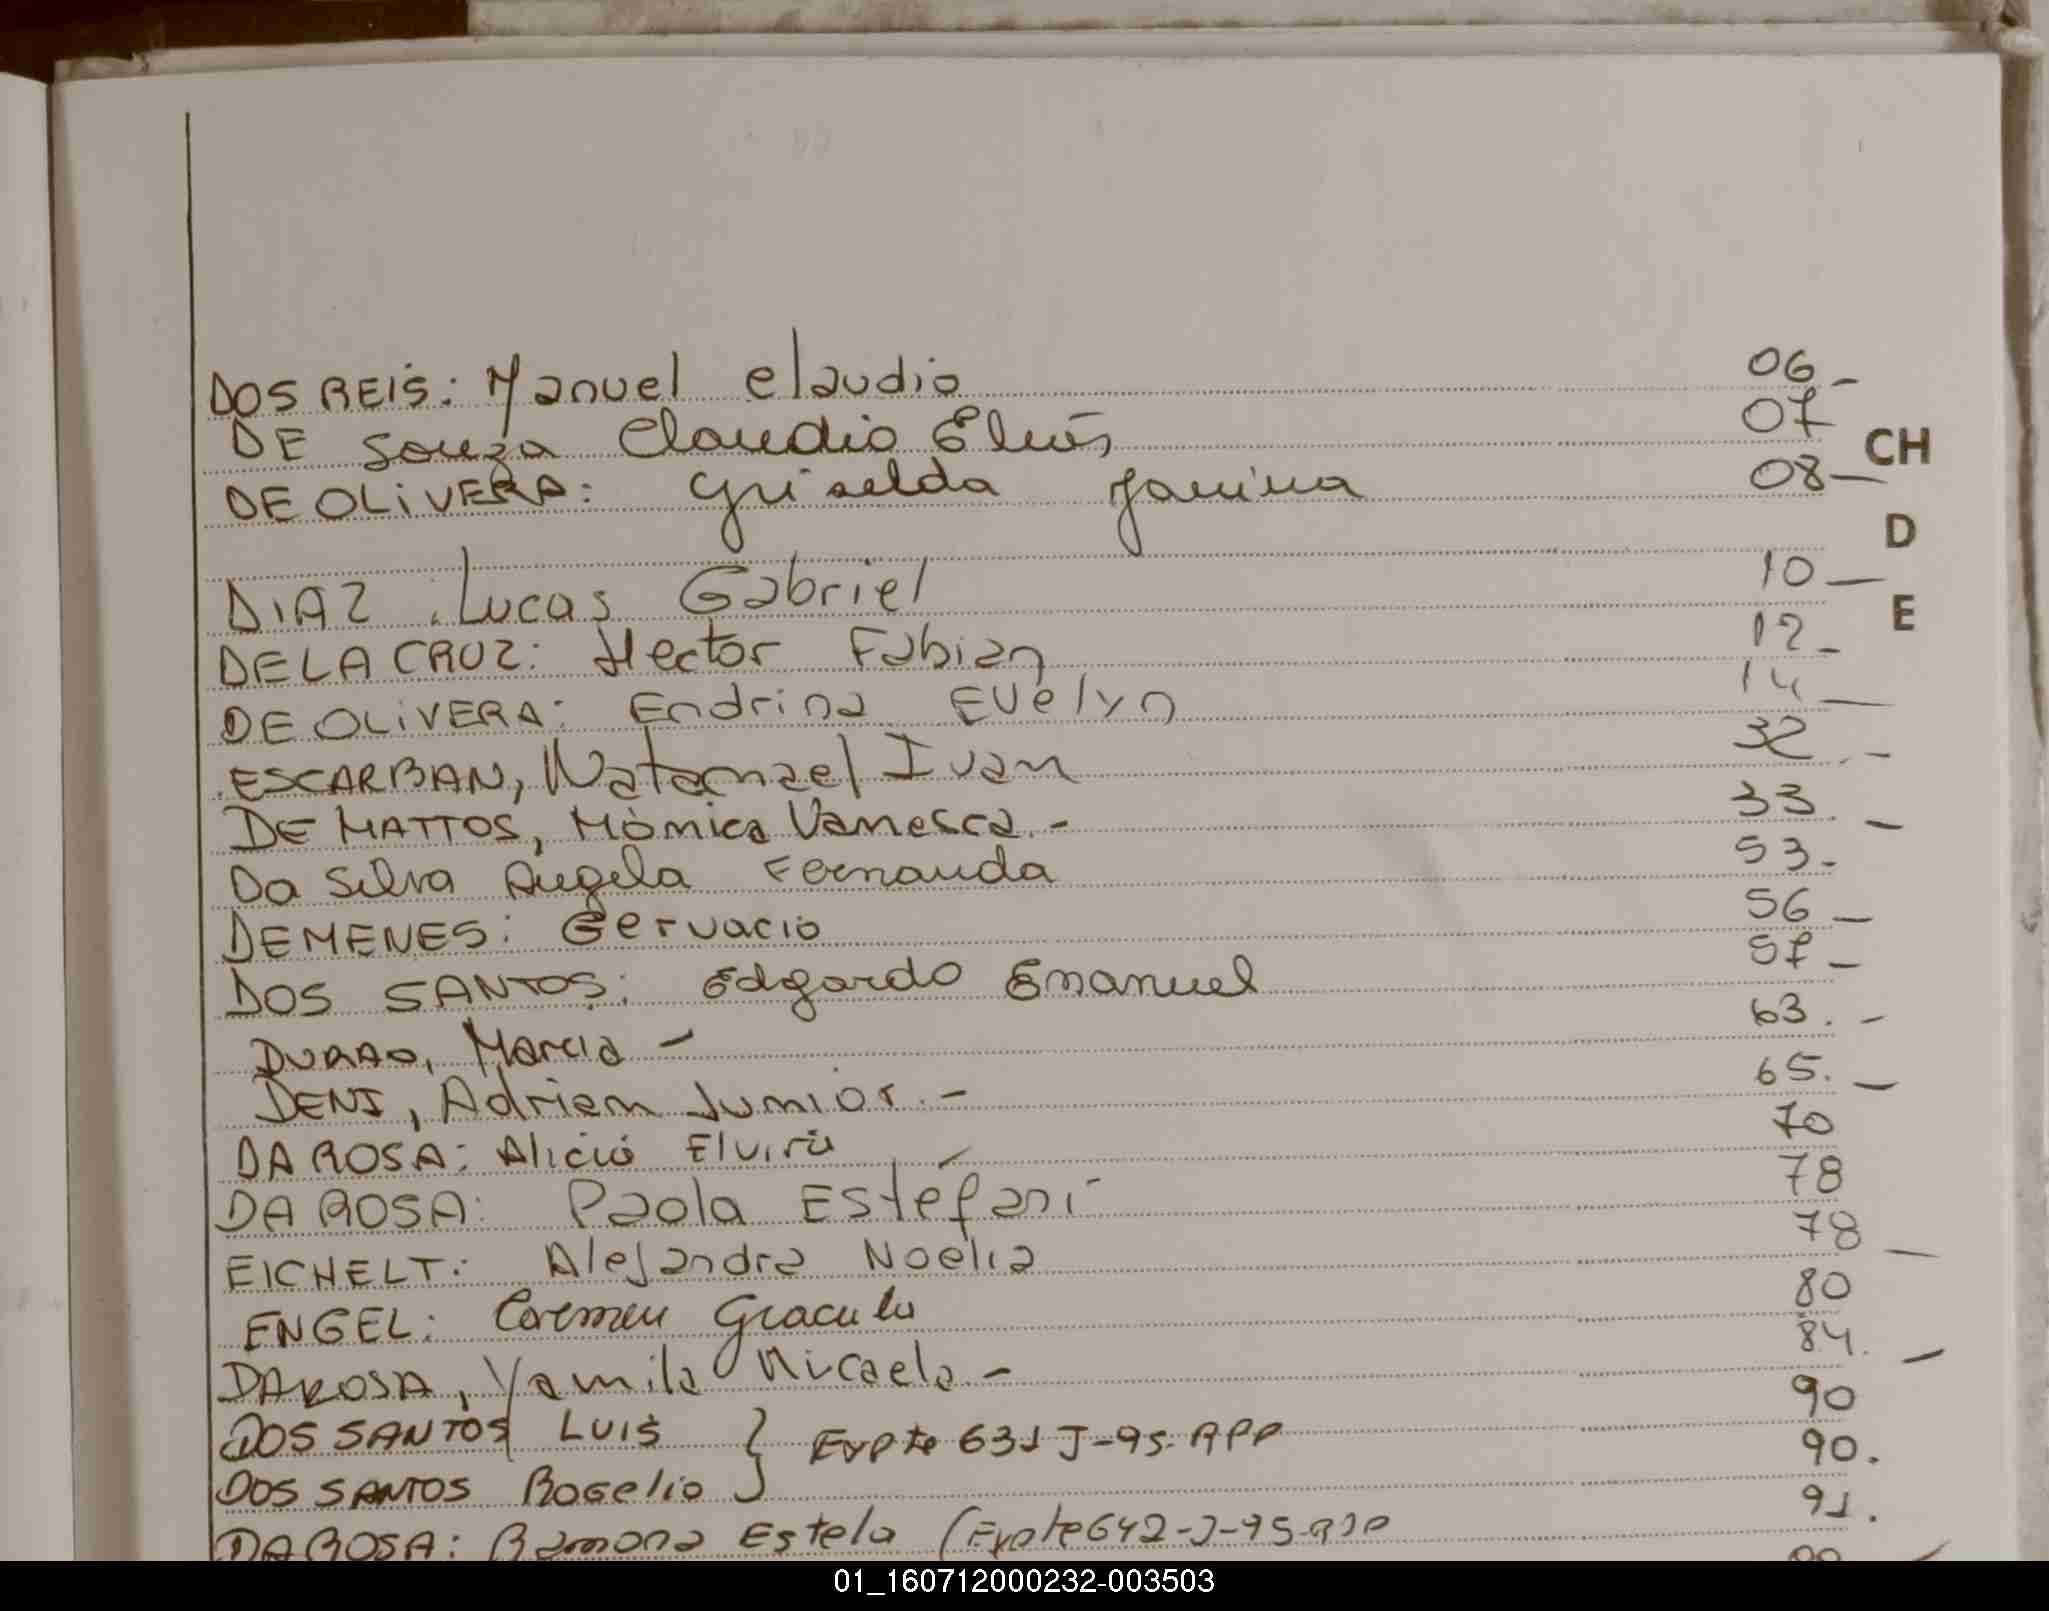 DOS REIS: Manuel Claudio 06_
DE Souza Claudio Elvis 07
CH
DE OLIVERA: Griselda Janina 08_
D
DIAZ Lucas Gabriel 10_
E
DE LA CRUZ: Hector Fabian 12_
DE OLIVERA: Endrina Evelyn 14_
ESCARBAN, Natanael Ivan 32.-
DE MATTOS, Mónica Vanesca.- 33._
Da Silva Angela Fernanda 53.-
DEMENES: Gervacio 56_
DOS SANTOS: Edgardo Emanuel 57_
DURAO, Marcia - 63.-
DENI, Adrian Junior.- 65._
DA ROSA: Alicia Elvira 70
DA ROSA: Paola Estéfani 78
EICHELT: Alejandra Noelia 78_
ENGEL: Carmen 80
DA ROSA, Yamila Micaela.- 84._
DOS SANTOS LUIS } Expte 631 J-95-RPP 90
DOS SANTOS Rogelio 90.
DA ROSA: Ramona Estela (Expte 642-J-95-RPP 91.
01_160712000232-003503